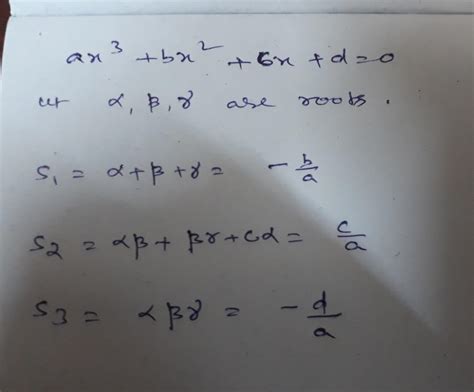 ax³ + bx² + 6x + d = 0
let α, β, γ are roots.
S₁ = α + β + γ = - b/a
S₂ = αβ + βγ + cα = c/a
S₃ = αβγ = - d/a